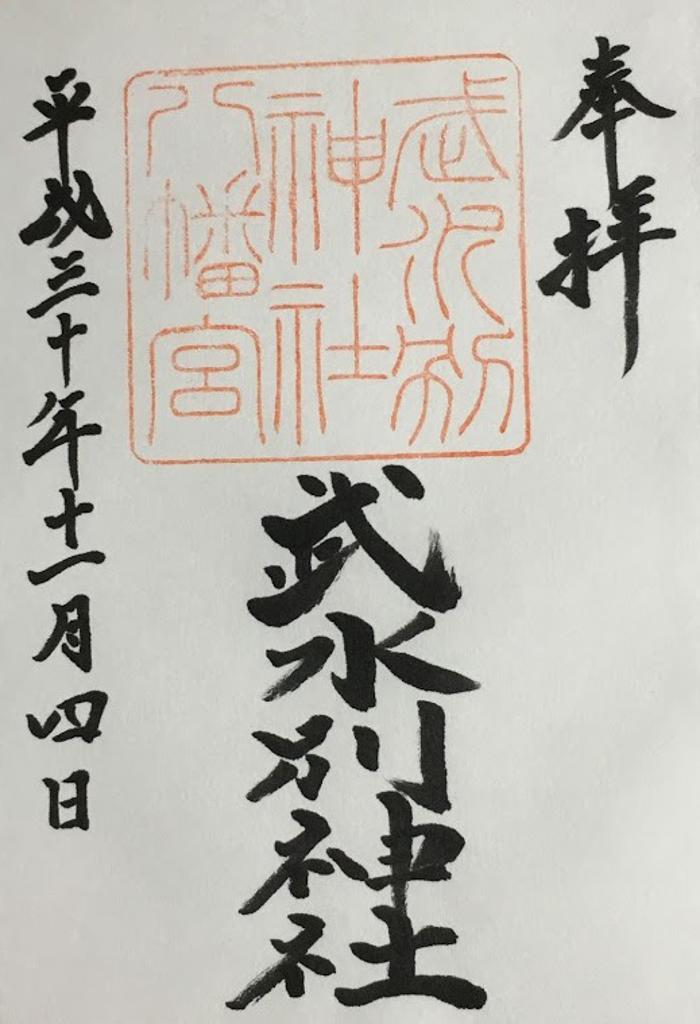 奉拝
武水別
神社
八幡宮
武水別神社
平成三十年十一月四日